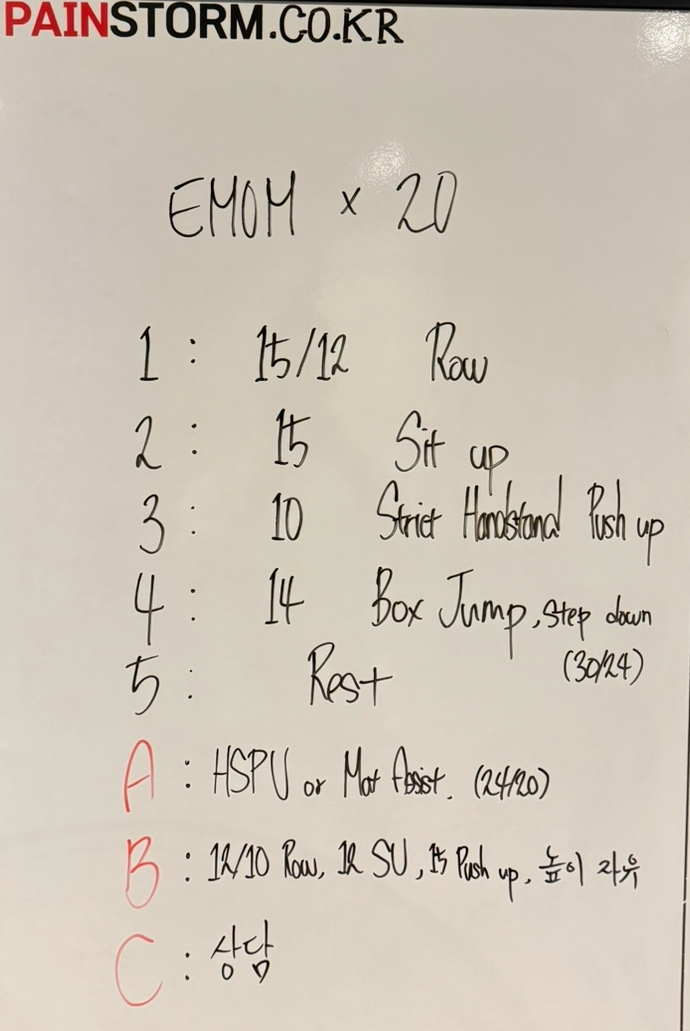 PAINSTORM.CO.KR
EMOM x 20
1 : 15/12 Row
2 : 15 Sit up
3 : 10 Strict Handstand Push up
4 : 14 Box Jump, Step down
(30/24)
5 : Rest
A : HSPU or Mat Assist. (24/20)
B : 12/10 Row, 12 SU, 15 Push up, 높이 자유
C : 상담